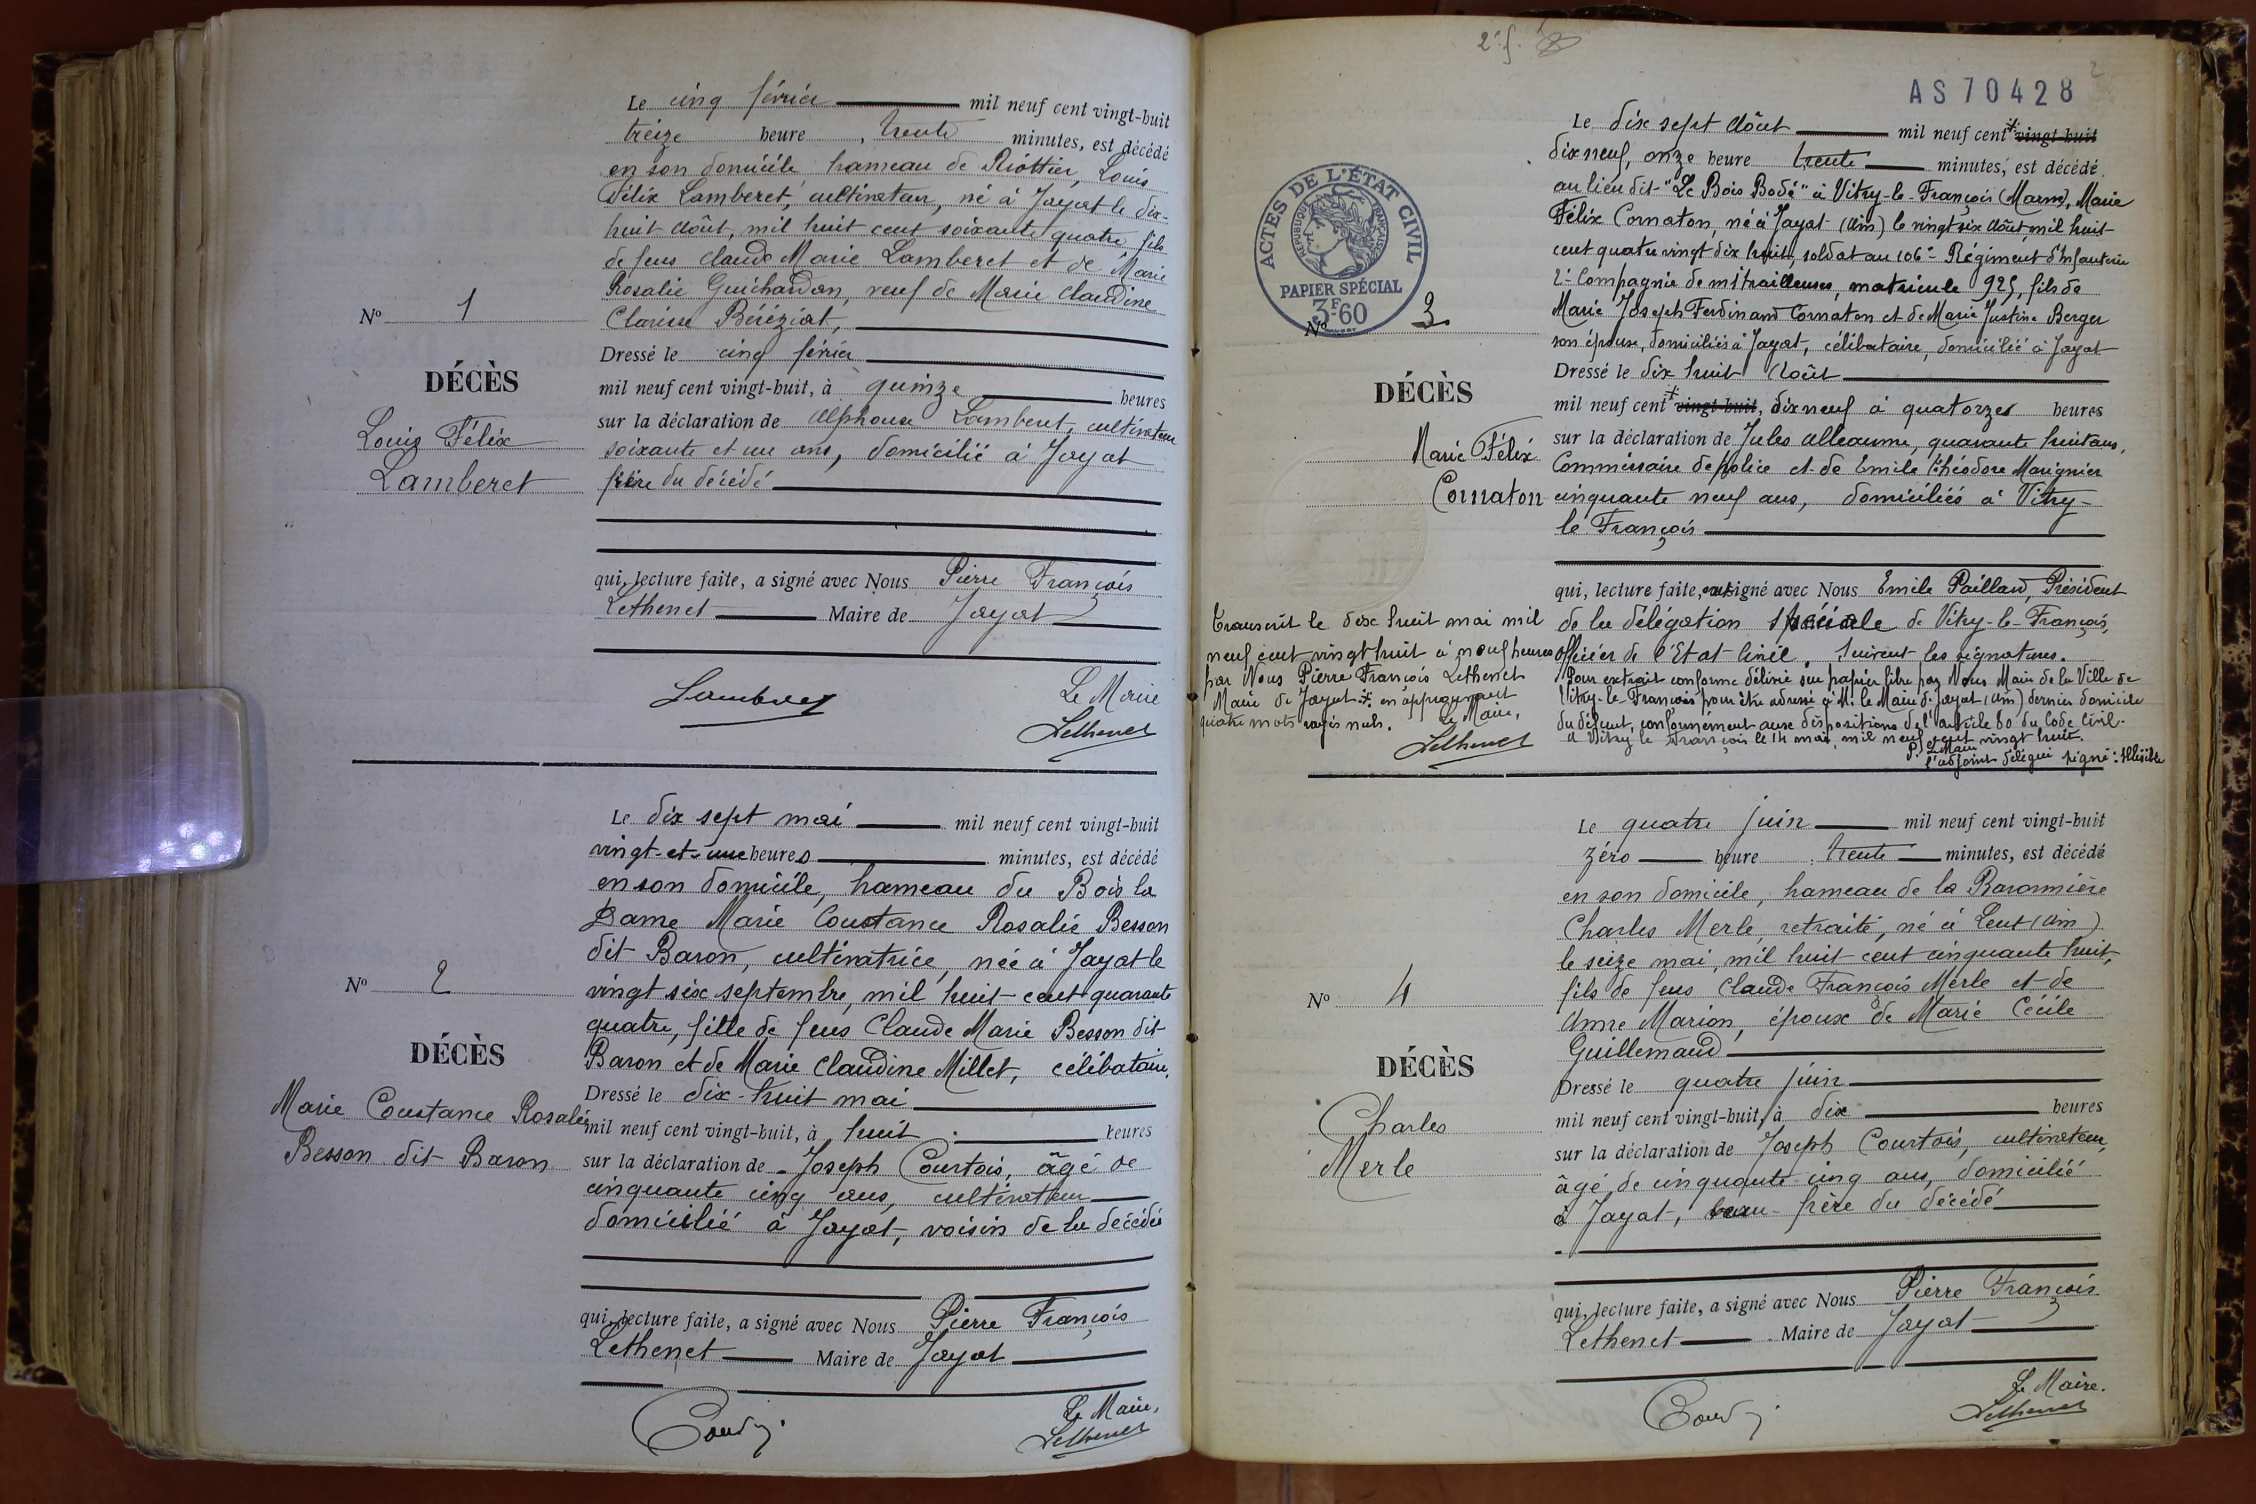 Le cinq février mil neuf cent vingt-huit
treize heure, trente minutes, est décédé
en son domicile hameau de Riottier, Louis
Félix Lamberet, cultivateur, né à Jayat le dix-
huit Août, mil huit cent soixante quatre, fils
de feus Claude Marie Lamberet et de Marie
Rosalie Guichardon, veuf de Marie Claudine
Clarisse Béréziat,
Dressé le cinq février
mil neuf cent vingt-huit, à quinze heures
sur la déclaration de Alphonse Lamberet, cultivateur
soixante et un ans, domicilié à Jayat
frère du décédé
qui, lecture faite, a signé avec Nous Pierre François
Lethenet Maire de Jayat
Lamberet
Le Maire
Lethenet
Nº 1
DÉCÈS
Louis Félix
Lamberet
Le dix sept mai mil neuf cent vingt-huit
vingt-et-une heures minutes, est décédé
en son domicile, hameau du Bois la
Dame Marie Constance Rosalie Besson
dit Baron, cultivatrice, née à Jayat le
vingt six septembre, mil huit cent quarante
quatre, fille de feus Claude Marie Besson dit
Baron et de Marie Claudine Millet, célibataire.
Dressé le dix-huit mai
mil neuf cent vingt-huit, à huit heures
sur la déclaration de Joseph Courtois, âgé de
cinquante cinq ans, cultivateur
domicilié à Jayat, voisin de la décédée
qui, lecture faite, a signé avec Nous Pierre François
Lethenet Maire de Jayat
Le Maire,
Lethenet
Nº 2
DÉCÈS
Marie Constance Rosalie
Besson dit Baron
2
AS70428
ACTES DE L'ÉTAT CIVIL
RÉPUBLIQUE FRANÇAISE
PAPIER SPÉCIAL
3F60
Le dix sept Août mil neuf cent + vingt-huit
dix neuf, onze heure trente minutes, est décédé
au lieu dit "Le Bois Bodé" à Vitry-le-François (Marne), Marie
Félix Cornaton, né à Jayat (Ain) le vingt six Août, mil huit
cent quatre vingt dix huit, soldat au 106e Régiment d'Infanterie
2e Compagnie de mitrailleuses, matricule 925, fils de
Marie Joseph Ferdinand Cornaton et de Marie Justine Berger
son épouse, domiciliés à Jayat, célibataire, domicilié à Jayat
Dressé le dix huit Août
mil neuf cent + vingt-huit, dix neuf à quatorze heures
sur la déclaration de Jules Alleaume, quarante huit ans,
Commissaire de police et de Emile Théodore Marignier
cinquante neuf ans, domiciliés à Vitry-
le François
qui, lecture faite, ont signé avec Nous Emile Paillard, Président
de la délégation spéciale de Vitry-le-François,
officier de l'Etat Civil. Suivent les signatures.
Pour extrait conforme délivré sur papier libre par Nous Maire de la Ville de
Vitry-le-François pour être adressé à M. le Maire de Jayat (Ain) dernier domicile
du défunt, conformément aux dispositions de l'article 80 du Code Civil.
A Vitry le François le 14 mai, mil neuf cent vingt huit.
P. Le Maire
l'adjoint délégué signé : Illisible
Nº 3
DÉCÈS
Marie Félix
Cornaton
Transcrit le dix huit mai mil
neuf cent vingt huit à neuf heures
par Nous Pierre François Lethenet
Maire de Jayat + en approuvant
quatre mots rayés nuls.
Le Maire,
Lethenet
Le quatre juin mil neuf cent vingt-huit
zéro heure, trente minutes, est décédé
en son domicile, hameau de la Baronnière
Charles Merle, retraité, né à Lent (Ain)
le seize mai, mil huit cent cinquante huit,
fils de feus Claude François Merle et de
Anne Marion, époux de Marie Cécile
Guillemaud
Dressé le quatre juin
mil neuf cent vingt-huit, à dix heures
sur la déclaration de Joseph Courtois, cultivateur,
âgé de cinquante-cinq ans, domicilié
à Jayat, beau-frère du décédé
qui, lecture faite, a signé avec Nous Pierre François
Lethenet Maire de Jayat
Le Maire.
Lethenet
Nº 4
DÉCÈS
Charles
Merle